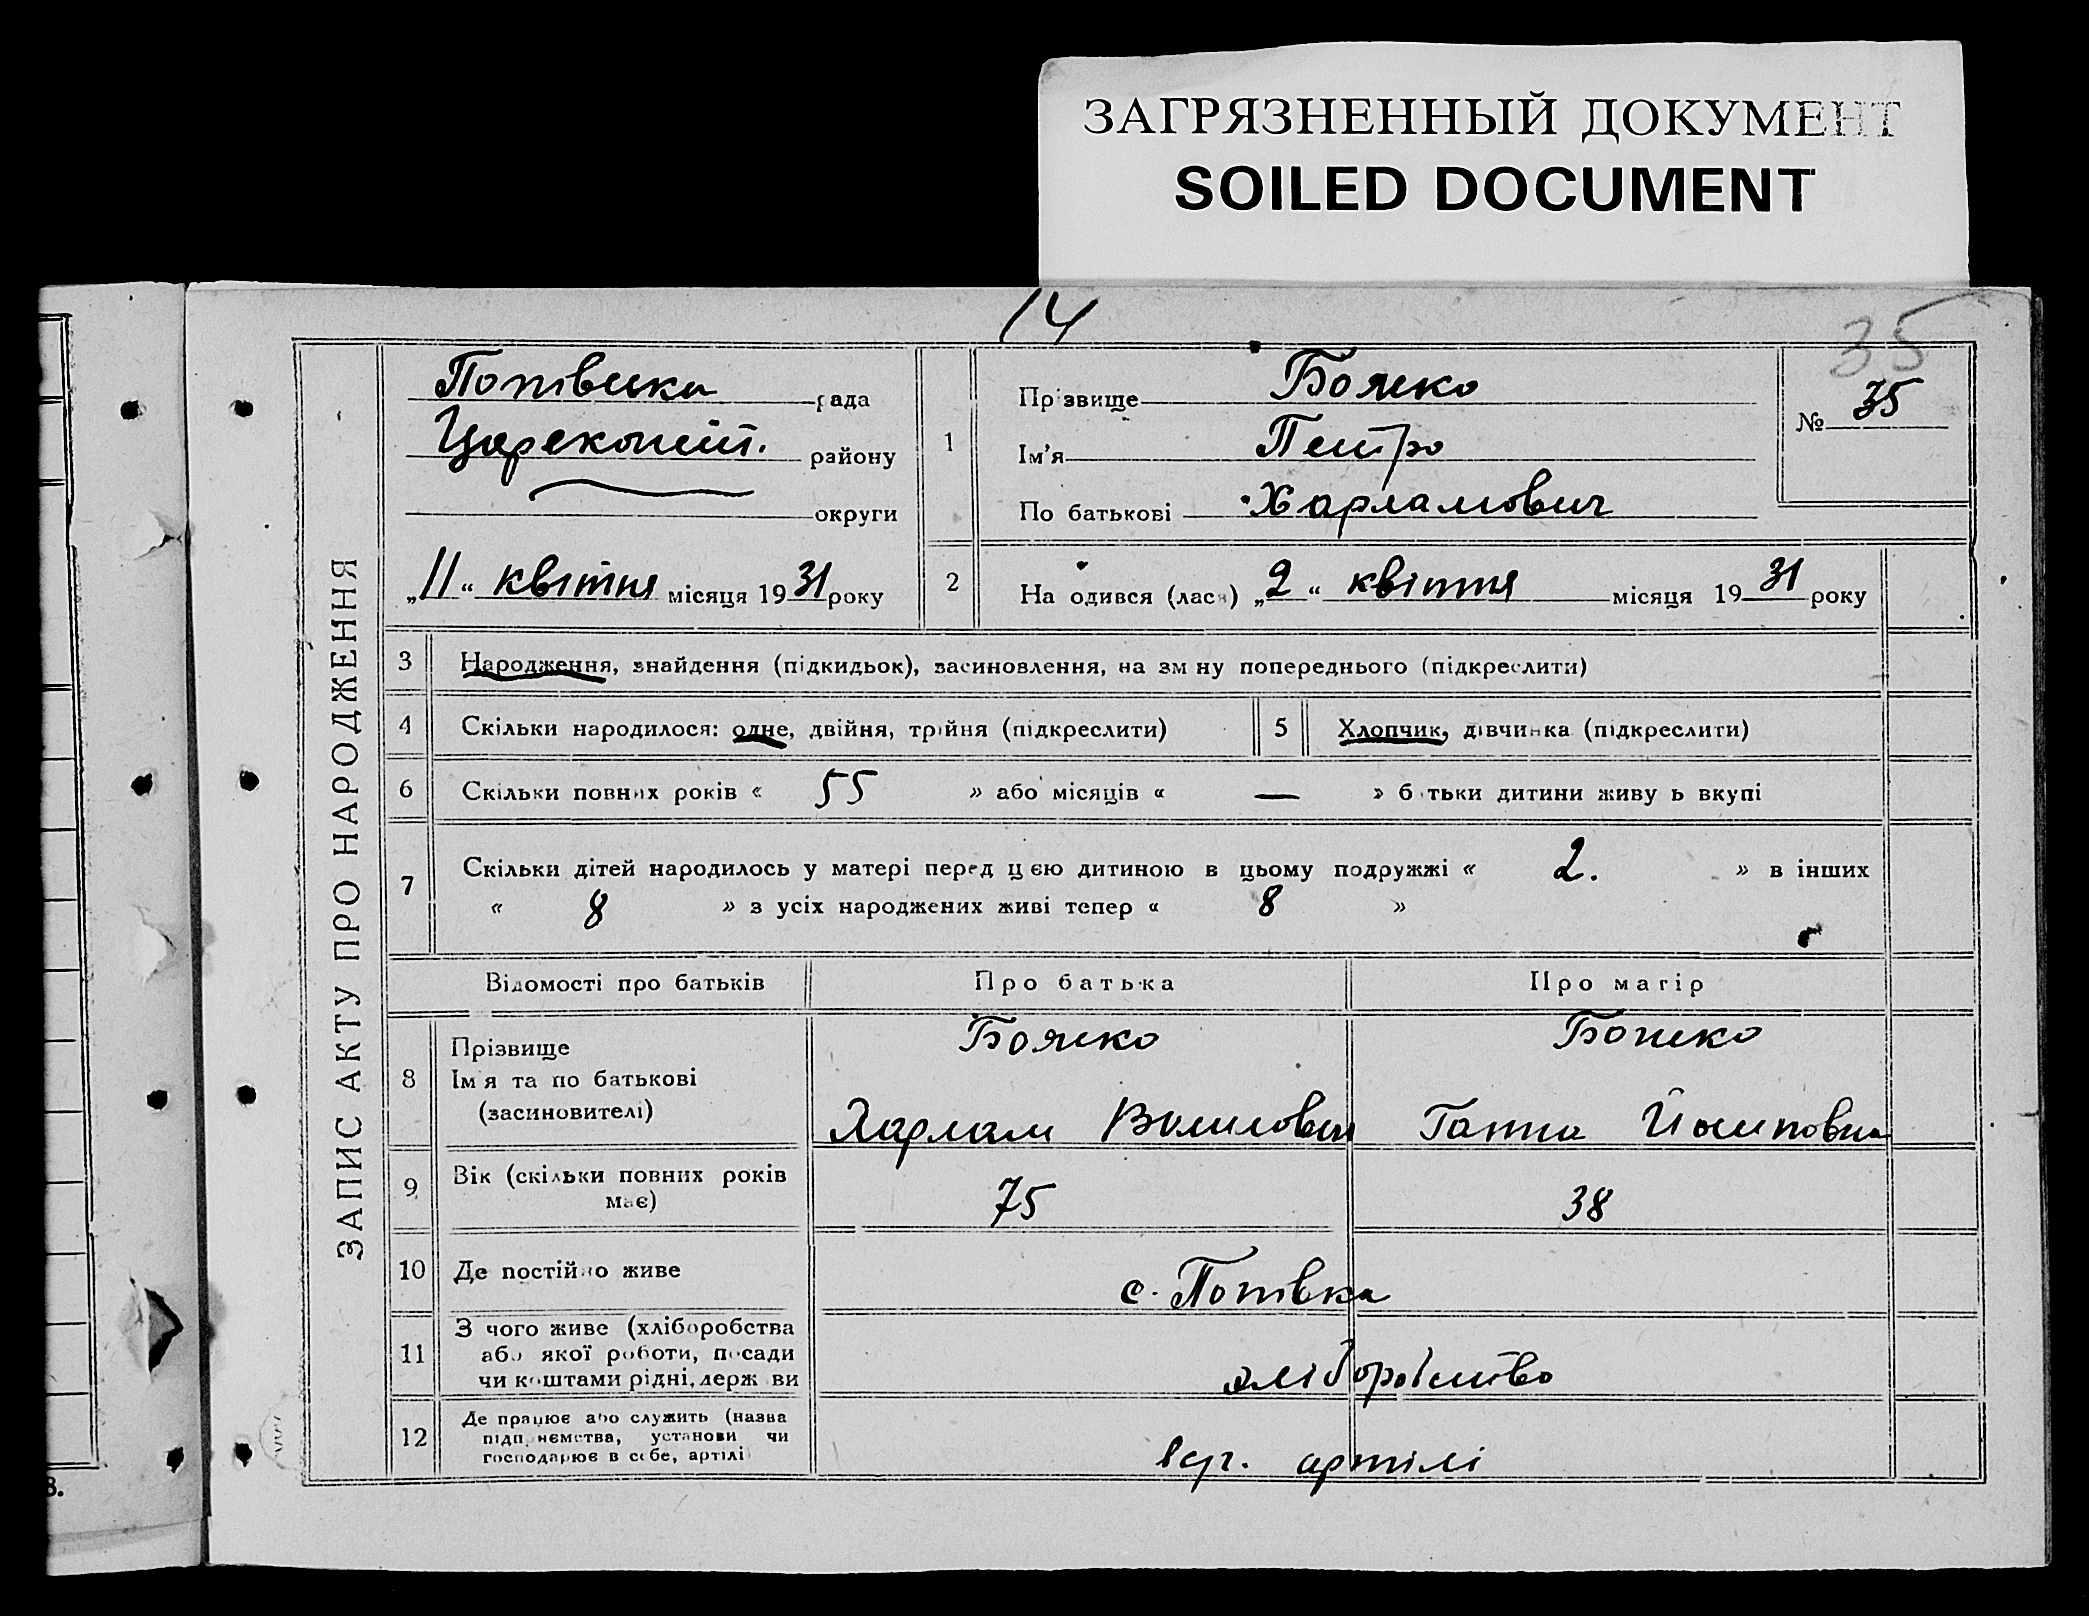 ЗАГРЯЗНЕННЫЙ ДОКУМЕНТ
SOILED DOCUMENT
14
35
ЗАПИС АКТУ ПРО НАРОДЖЕННЯ
Попівська рада
району
округи
„11“ квітня місяця 1931 року
1
Прізвище Божко
Ім'я Петро
По батькові Харламович
№ 35
2 Народився (лася) „2“ квітня місяця 1931 року
3 Народження, знайдення (підкидьок), засиновлення, на зміну попереднього (підкреслити)
4 Скільки народилося: одне, двійня, трійня (підкреслити) 5 Хлопчик, дівчинка (підкреслити)
6 Скільки повних років « 55 » або місяців « — » батьки дитини живуть вкупі
7 Скільки дітей народилось у матері перед цією дитиною в цьому подружжі « 2. » в інших
« 8 » з усіх народжених живі тепер « 8 »
Відомості про батьків Про батька Про матір
8 Прізвище Божко Божко
Ім'я та по батькові
(засиновителі) Харлам Ганна Йосиповна
9 Вік (скільки повних років
має) 75 38
10 Де постійно живе с. Попівка
11 З чого живе (хліборобства
або якої роботи, посади хліборобство
чи коштами рідні, держави
12 Де працює або служить (назва
підприємства, установи чи
господарює в себе, артілі) артілі
8.